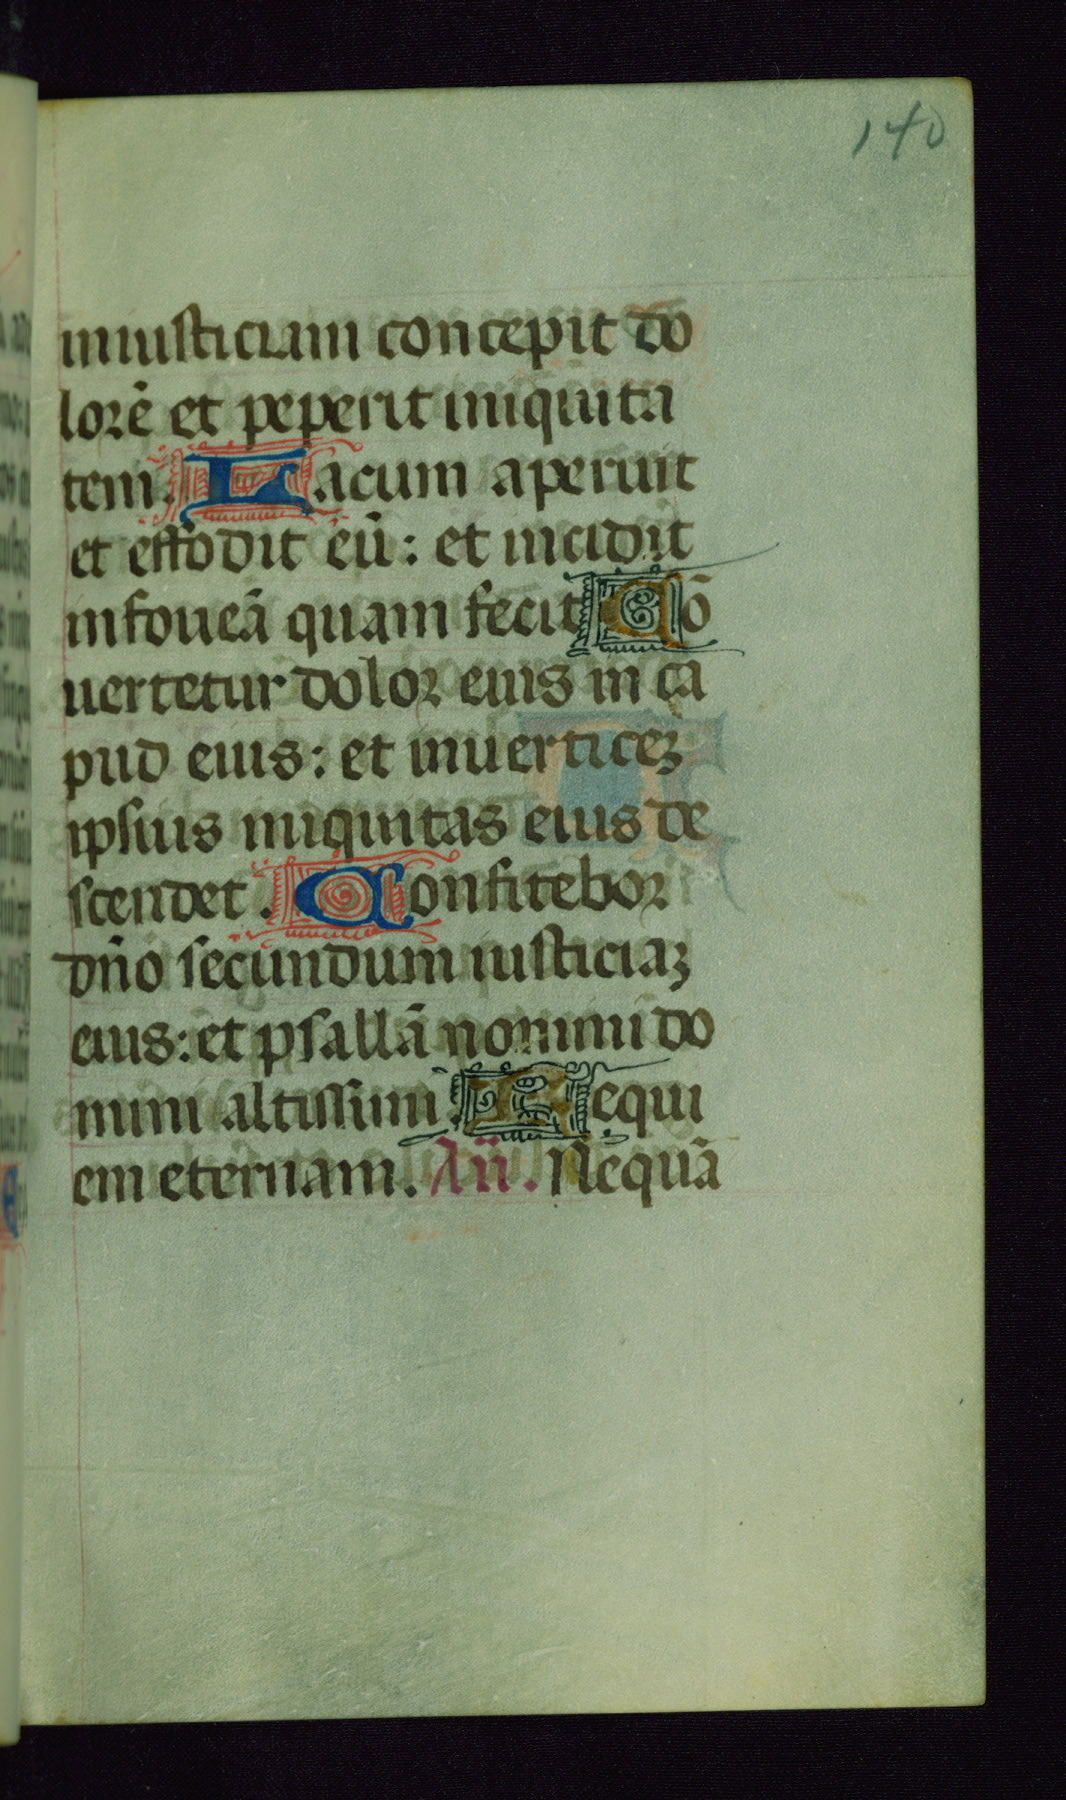 140
iniusticiam concepit do
lorē et peperit iniquita
tem. Lacum aperuit
et effodit eū: et incidit
in foueā quam fecit Cō
uertetur dolor eius in ca
pud eius: et in uerticeꝫ
ipsius iniquitas eius de
scendet. Confitebor
dn̄o secundum iusticiaꝫ
eius: et psallā nomini do
mini altissimi. Requi
em eternam. An̄. Nequā